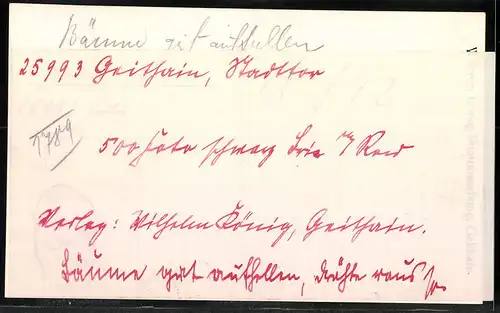 Bäume gut aufhellen
25993 Geithain, Stadttor
1789
500 Foto schwarz
Verlag: Wilhelm König, Geithain.
Bäume gut aufhellen, Drähte raus